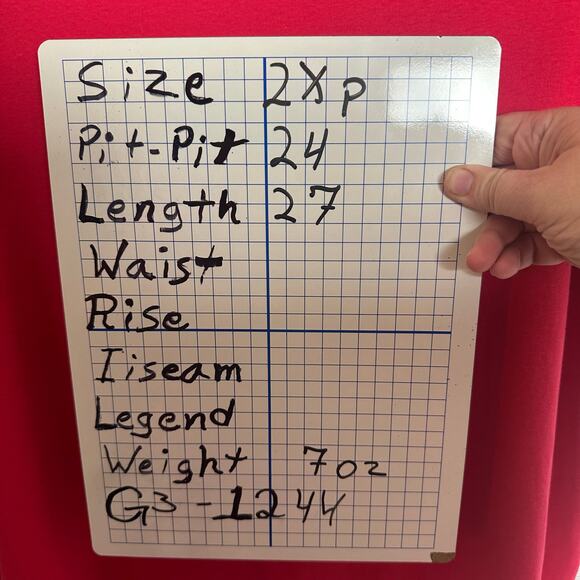 Size 2Xp
Pit-Pit 24
Length 27
Waist
Rise
Iiseam
Legend
Weight 7oz
G3-1244